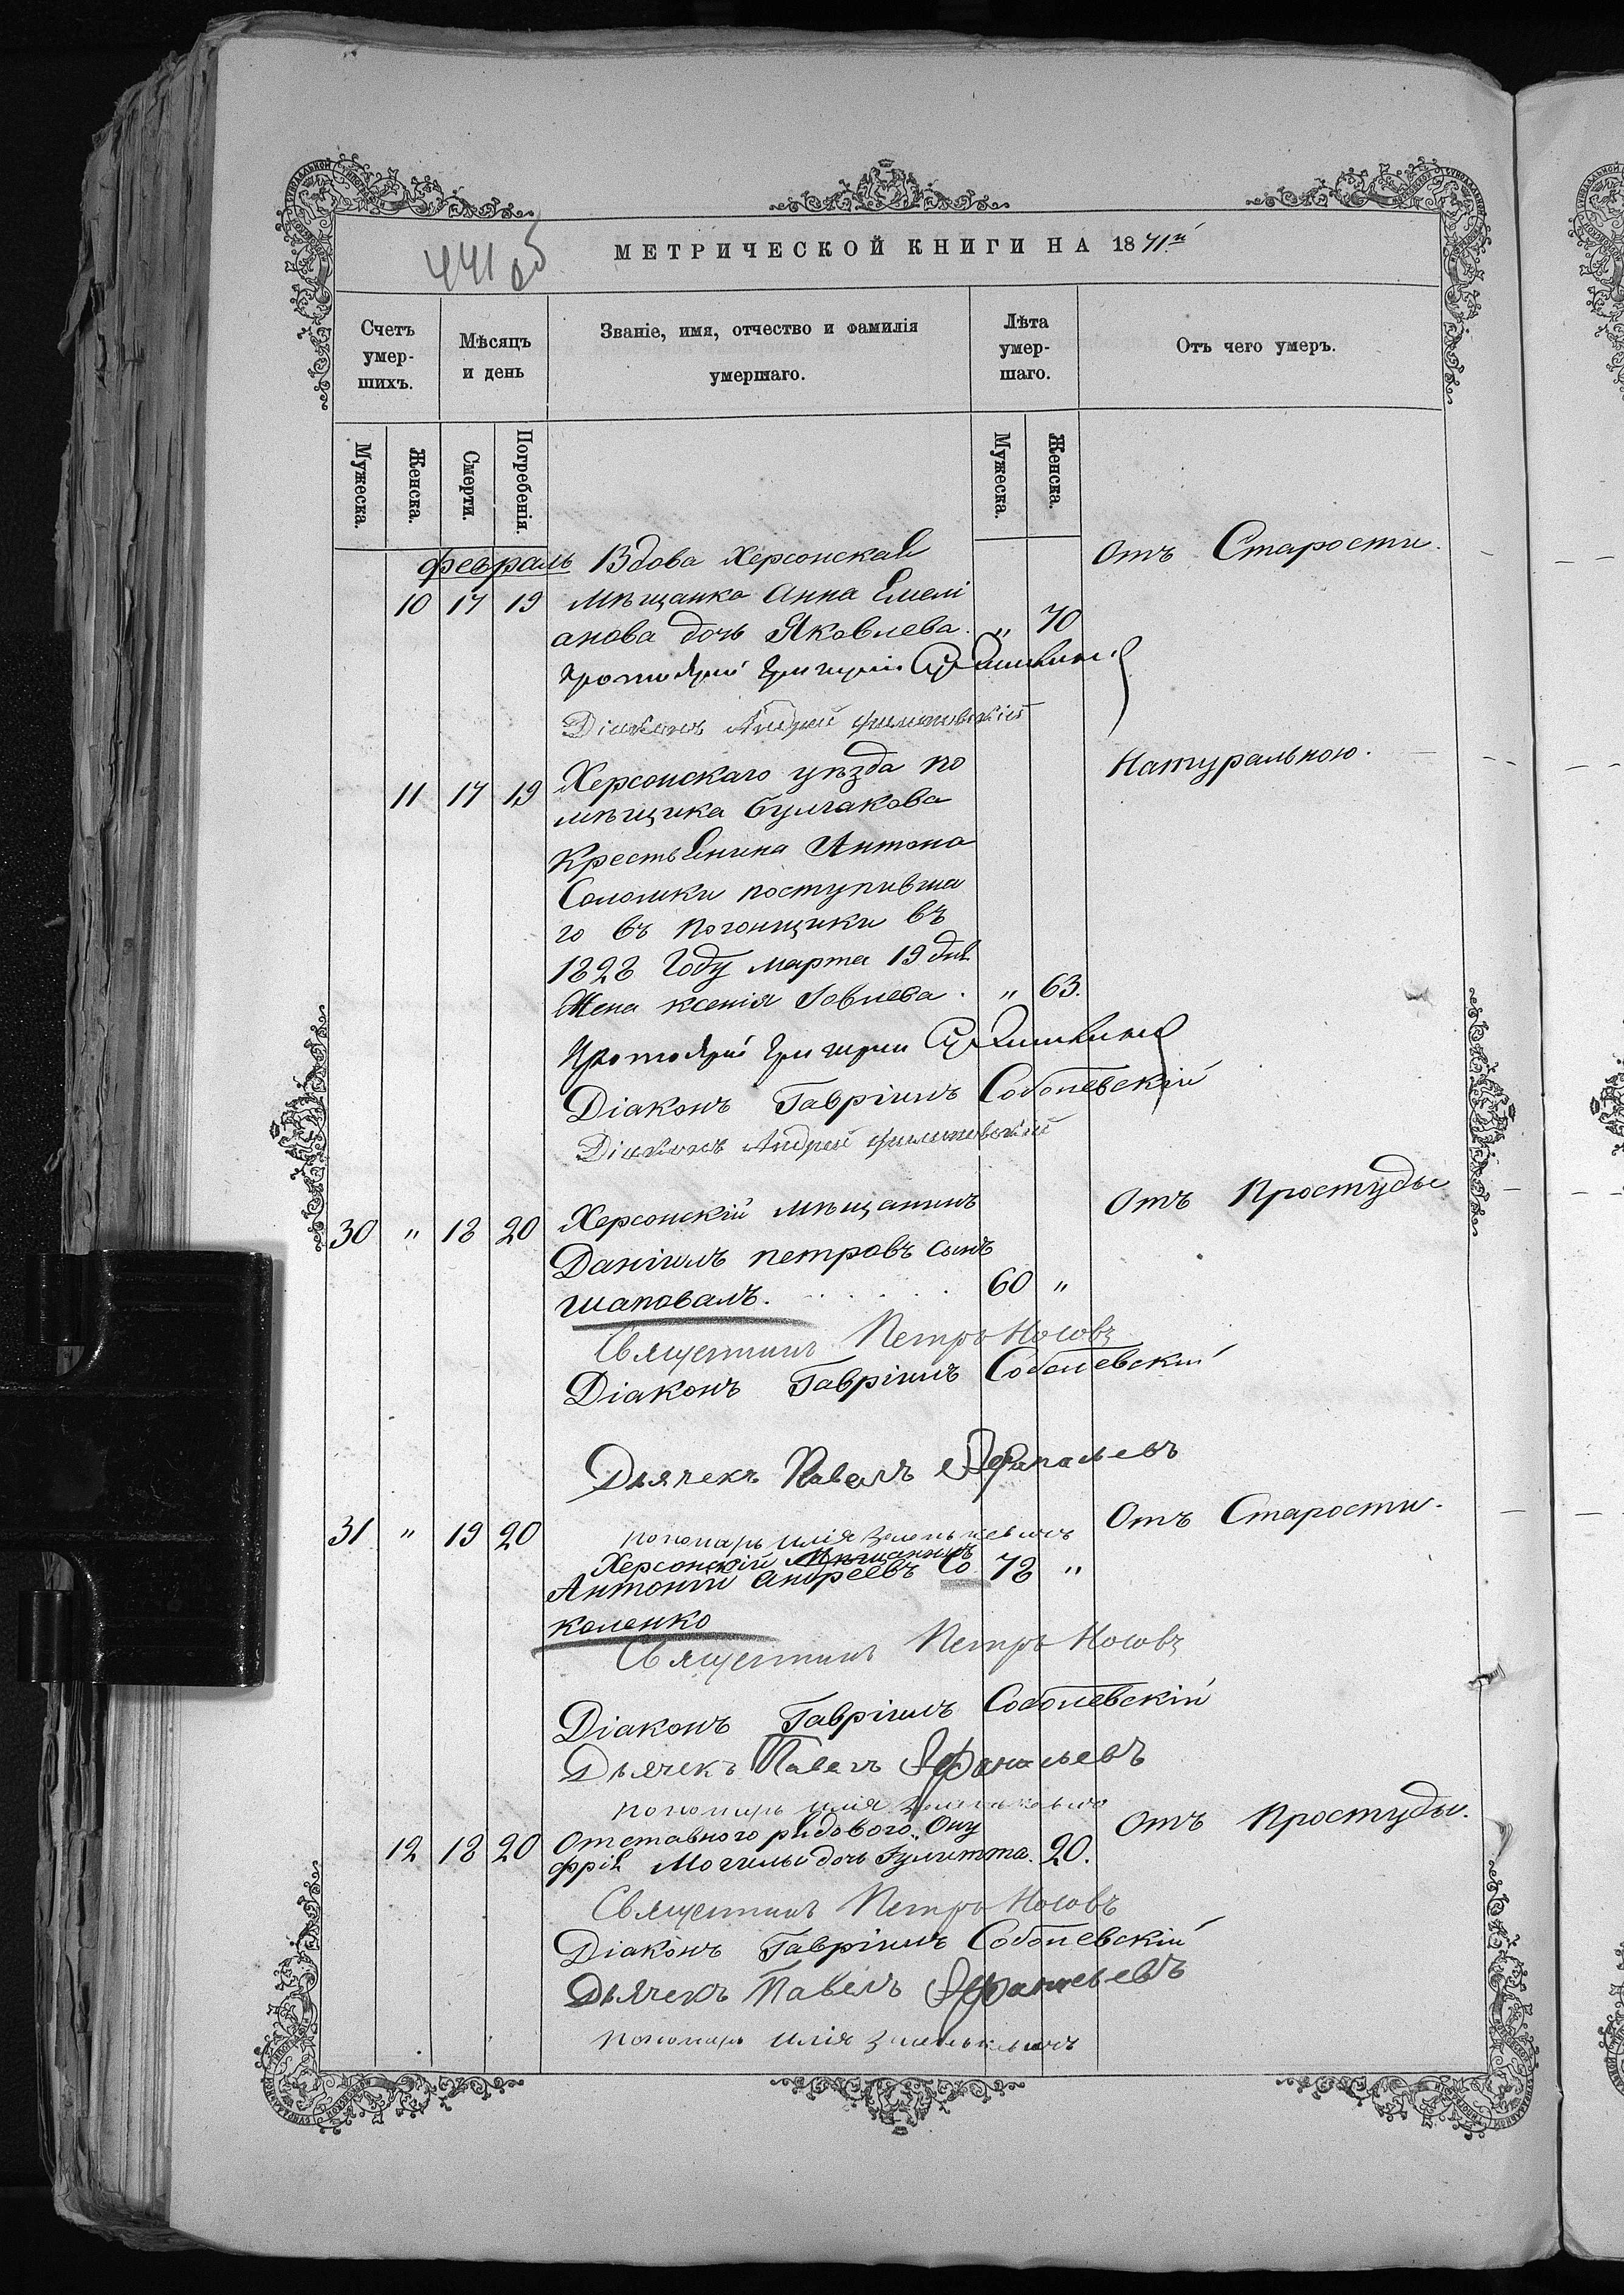 441 об
МЕТРИЧЕСКОЙ КНИГИ НА 1871й
Счетъ умер-шихъ.
Мѣсяцъ и день
Званіе, имя, отчество и фамилія умершаго.
Лѣта умер-шаго.
Отъ чего умеръ.
Мужеска.
Женска.
Смерти.
Погребенія.
Мужеска.
Женска.
февраль Вдова Херсонская отъ Старости.
10 17 19 мѣщанка Анна Емелі
анова дочь Яковлева. „ 70
Протоіерей Григорій
Діаконъ Андрей
Херсонскаго уѣзда по Натуральною.
11 17 19 мѣщика Булгакова
Крестьянина Антона
Соломки поступивша
го въ погонщики въ
1828 Году марта 19 дня
Жена ксенія Іовлева. „ 63.
Протоіерей Григорій
Діаконъ Гавріилъ Соболевскій
Діаконъ Андрей
30 „ 18 20 Херсонскій мѣщанинъ Отъ Простуды
Даніилъ петровъ сынъ
шаповалъ. 60 „
Священникъ Петръ Носовъ
Діаконъ Гавріилъ Соболевскій
Дьячекъ Павелъ Афанасьевъ
31 „ 19 20 Отъ Старости.
пономарь илія Зеленькевичъ
Херсонскій Мѣщанинъ
Антоній андреевъ Со 78 „
коленко
Священникъ Петръ Носовъ
Діаконъ Гавріилъ Соболевскій
Дьячекъ Павелъ Афанасьевъ
пономарь илія Зеленькевичъ
12 18 20 Отставного рядового Ону Отъ Простуды.
фрія Могилы дочь Іулитта. 20.
Священникъ Петръ Носовъ
Діаконъ Гавріилъ Соболевскій
Дьячекъ Павелъ Афанасьевъ
пономарь илія Зеленькевичъ